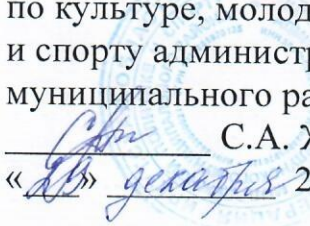 по культуре, молод
и спорту администр
муниципального ра
С.А. Ж
«29» декабря 2